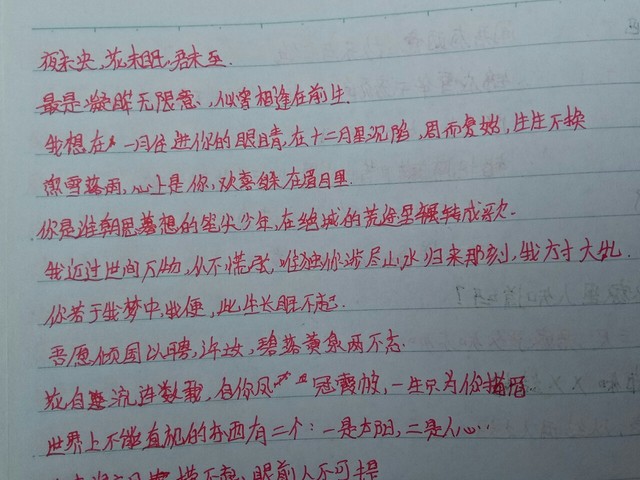 夜未央,花未眠,君未至.
最是凝眸无限意,似曾相逢在前生.
我想在 一月住进你的眼睛,在十二月里沉陷,周而复始,生生不换
霜雪落雨,心上是你,欢喜躲在眉目里.
你是谁朝思暮想的笔尖少年,在绝城的荒途里辗转成歌.
我近过世间万物,从不慌张,唯独你涉尽山水归来那刻,我方寸大乱.
你若于我梦中,我便,此生长眠不起.
吾愿倾国以聘,许汝,碧落黄泉两不忘.
流连数载,自你凤 冠霞帔,一生只为你描眉
世界上不能直视的东西有二个:一是太阳,二是人心…
眼前人不可提